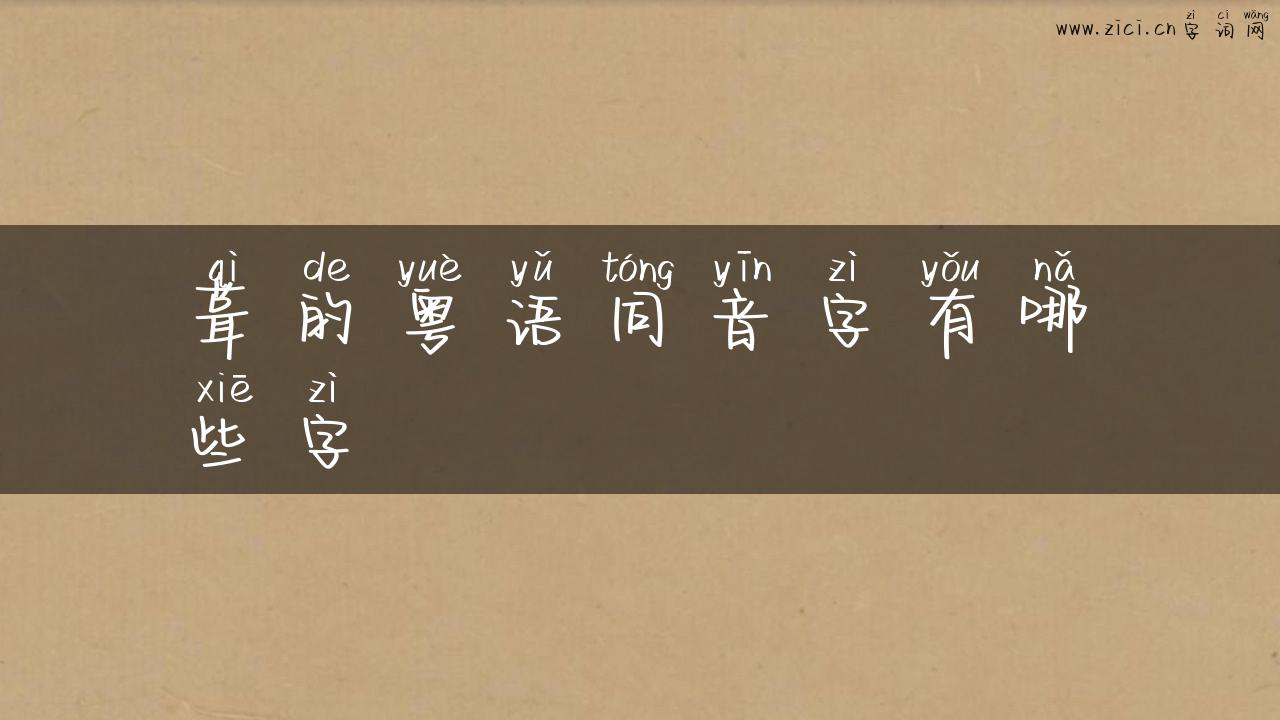 www.zici.cn 字词网
zì cí wǎng
qì de yuè yǔ tóng yīn zì yǒu nǎ
葺的粤语同音字有哪
xiē zì
些字